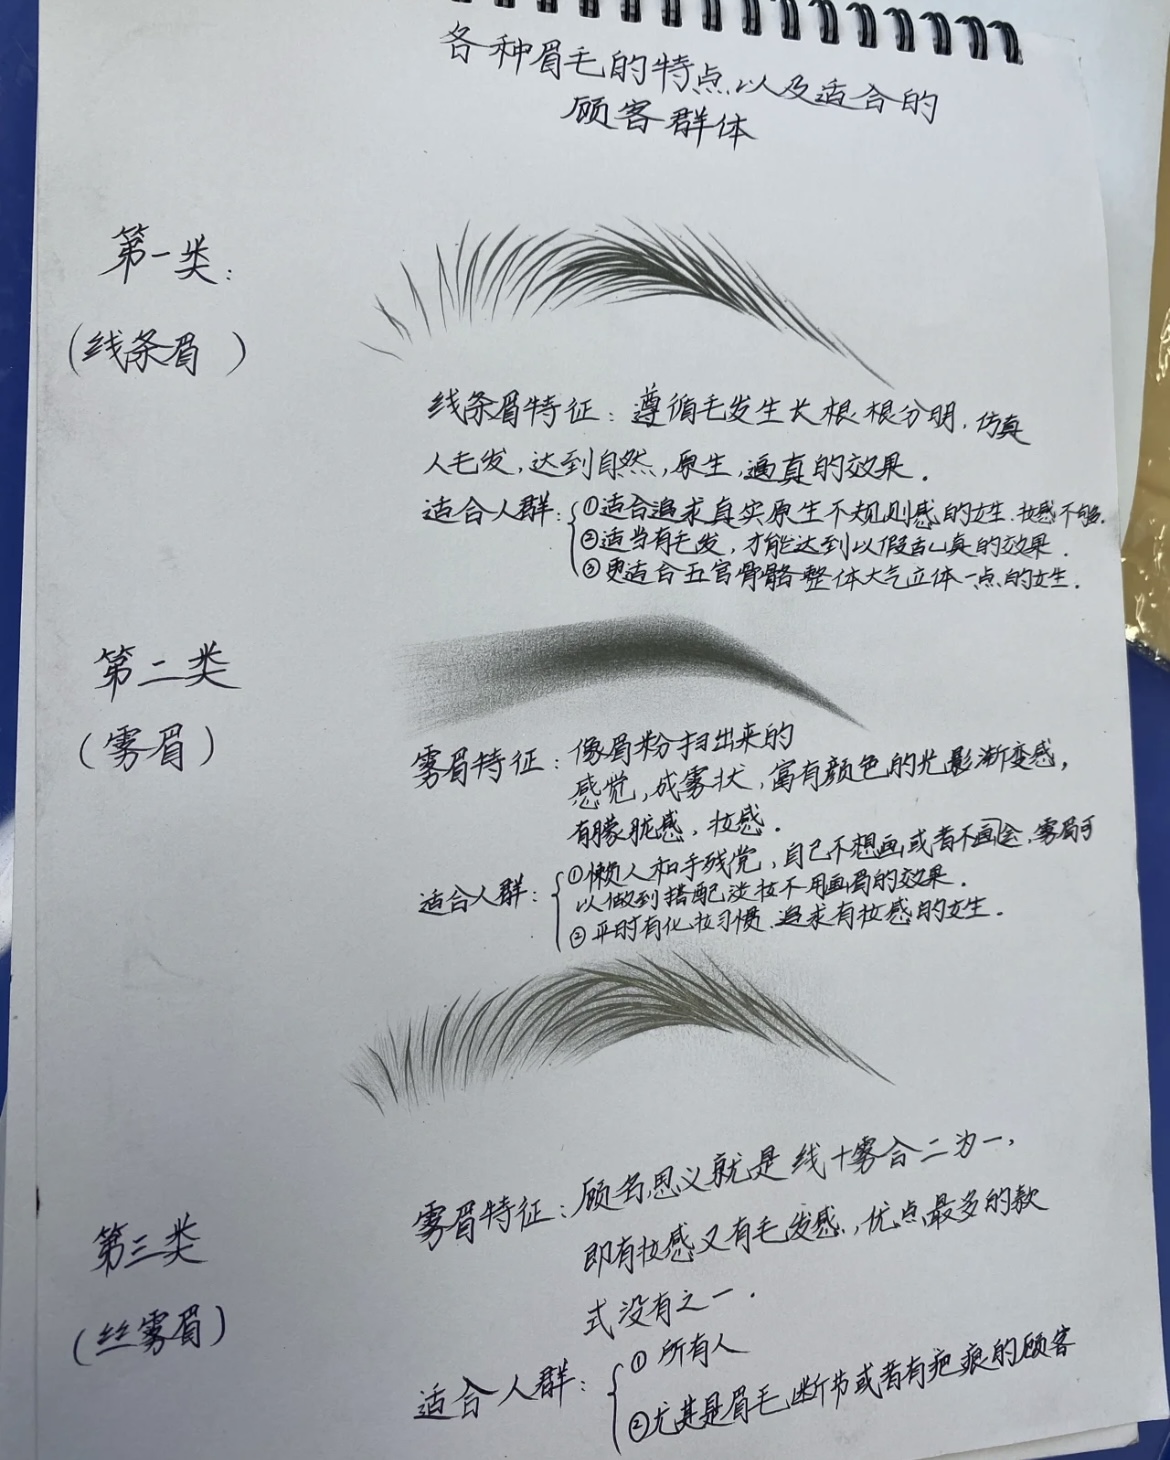 各种眉毛的特点以及适合的
顾客群体
第一类:
(线条眉)
线条眉特征:遵循毛发生长根根分明,仿真
人毛发,达到自然,原生,逼真的效果.
适合人群:
①适合追求真实原生不规则感的女生.妆感不够.
②适当有毛发,才能达到以假乱真的效果.
③更适合五官骨骼整体大气立体一点的女生.
第二类
(雾眉)
雾眉特征:像眉粉扫出来的
感觉,成雾状,富有颜色的光影渐变感,
有朦胧感,妆感.
适合人群:
①懒人和手残党,自己不想画或者不画会,雾眉可
以做到搭配淡妆不用画眉的效果.
②平时有化妆习惯.追求有妆感的女生.
第三类
(丝雾眉)
雾眉特征:顾名思义就是线+雾合二为一,
即有妆感又有毛发感,优点最多的款
式没有之一.
适合人群:
①所有人
②尤其是眉毛断节或者有疤痕的顾客